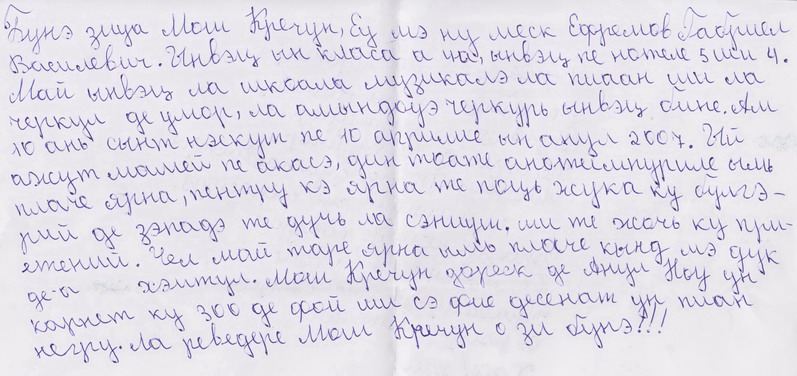 Бунэ зиуа Мош Кречун, Еу мэ ну меск Ефремов Габриел
Василевич. Ынвэц ын класа а на, ынвэц пе нотеле 5 ши 4.
Май ынвэц ла шкоала музикалэ ла пиаан ши ла
черкул де умор, ла амындоуэ черкурь ынвэц бине. Ам
10 ань сынт нэскут пе 10 априлие ын анул 2007. Ый
ажут мамей пе акасэ, дин тоате анотеймпуриле ымь
плаче ярна, пентру кэ ярна те поць жука ку булгэ-
рий де зэпадэ те дучь ла сэниуш. ши те жочь ку при-
етений. Чел май таре ярна ымь плаче кынд мэ дук
де-а хэитул. Мош Кречун дореск де Анул Ноу ун
карнет ку 300 де фой ши сэ фие десенат ун пиан
негру. Ла реведере Мош Кречун о зи бунэ!!!